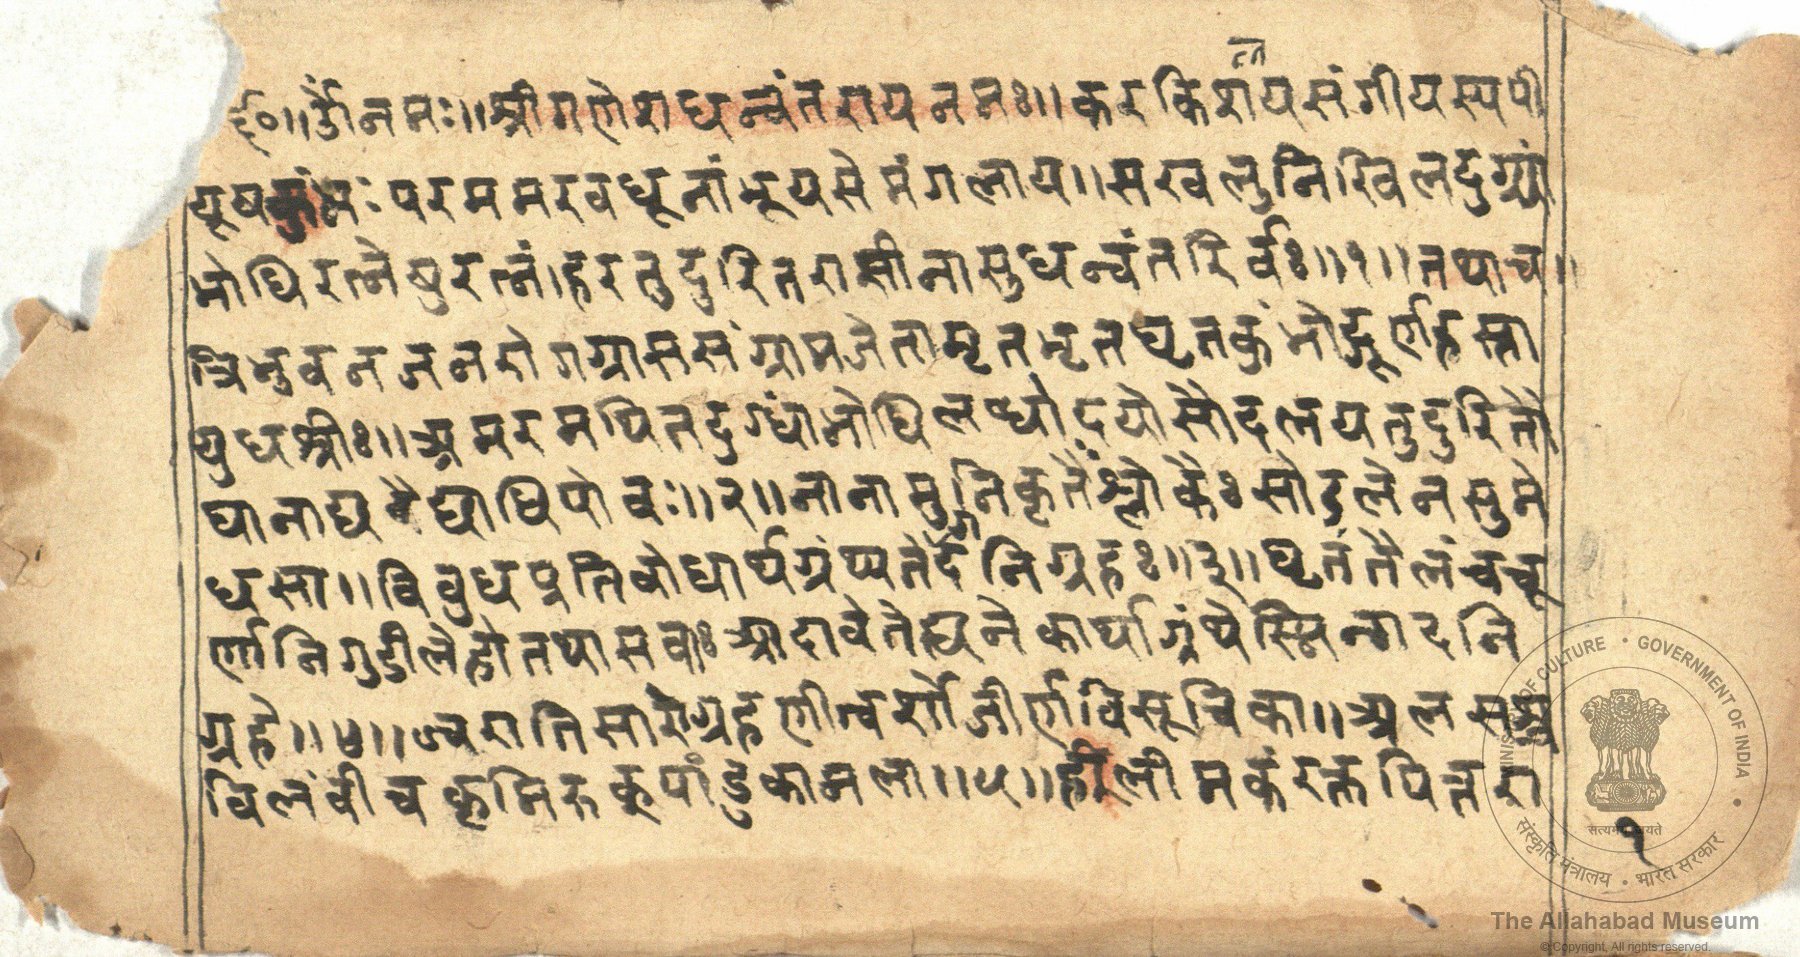 त्त
९०॥ ॐ नमः॥ श्रीगणेशधन्वंतरायनमः॥ करकिशयसंगीयस्यपी
यूषकुंभः परममरवधूनां भूयसे मंगलाय॥ सखलुनिखिलदुग्धां
भोधिरत्नेषुरत्नं। हरतुदुरितरासीनासुधन्वंतरिर्वः॥१॥ तथाच॥
त्रिभुवनजनरोगग्रामसंग्रामजेतामृतभृतघृतकुंभोद्गूर्णहस्ता
युधश्रीः॥ अमरमथितदुग्धांभोधिलब्धोदयोसौदलयतुदुरितौ
घानाद्यवैद्याधिपोवः॥२॥ नानामुनिकृतैः श्लोकैः सोद्गलेनसुमे
धसा॥ विवुधप्रतिबोधार्थग्रंथ्यतेदनिग्रहः॥३॥ घृतंतैलंचचू
र्णानिगुडीलेहोतथासवाः आदावेतेद्यनेकार्थाग्रंथेस्मिन्गदनि
ग्रहे॥४॥ ज्वरातिसारोग्रहणीत्वर्शोजीर्णविसूचिका॥ अलसश्च
विलंबीच कृमिरुक्पांडुकामला॥५॥ हलीमकंरक्तपित्तरा
१
MINISTRY OF CULTURE • GOVERNMENT OF INDIA •
सत्यमेव जयते
संस्कृति मंत्रालय • भारत सरकार
The Allahabad Museum
© Copyright, All rights reserved.